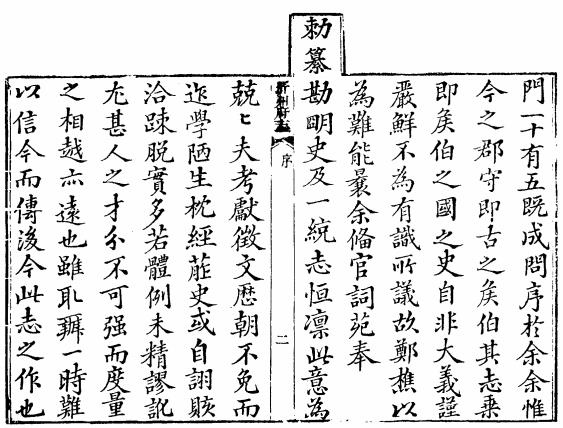 門一十有五既成問序於余余惟
今之郡守即古之矦伯其志乗
即矦伯之國之史自非大義謹
嚴鮮不為有識所議故鄭樵以
為難能曩余俻官詞苑奉
勅纂勘眀史及一統志恒凛此意為
沂州府志
序
二
兢〻夫考獻徴文厯朝不免而
迩學陋生枕經葄史或自詡賅
洽踈脱實多若體例未精謬訛
尤甚人之才分不可强而度量
之相越亦遠也雖耴辦一時難
以信今而傳後今此志之作也